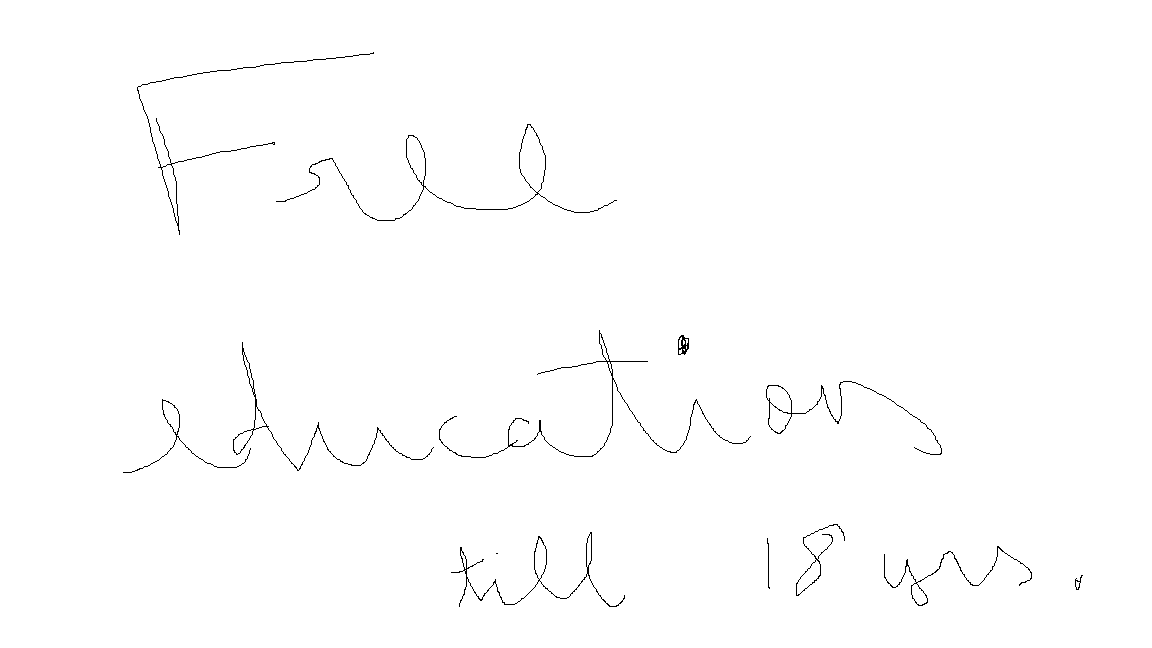 Free
education
till 18 yrs.